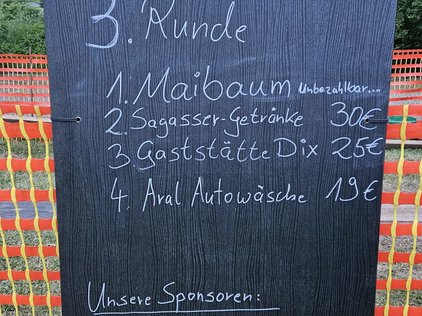 3. Runde
1. Maibaum Unbezahlbar...
2. Sagasser-Getränke 30€
3. Gaststätte Dix 25€
4. Aral Autowäsche 19€
Unsere Sponsoren: